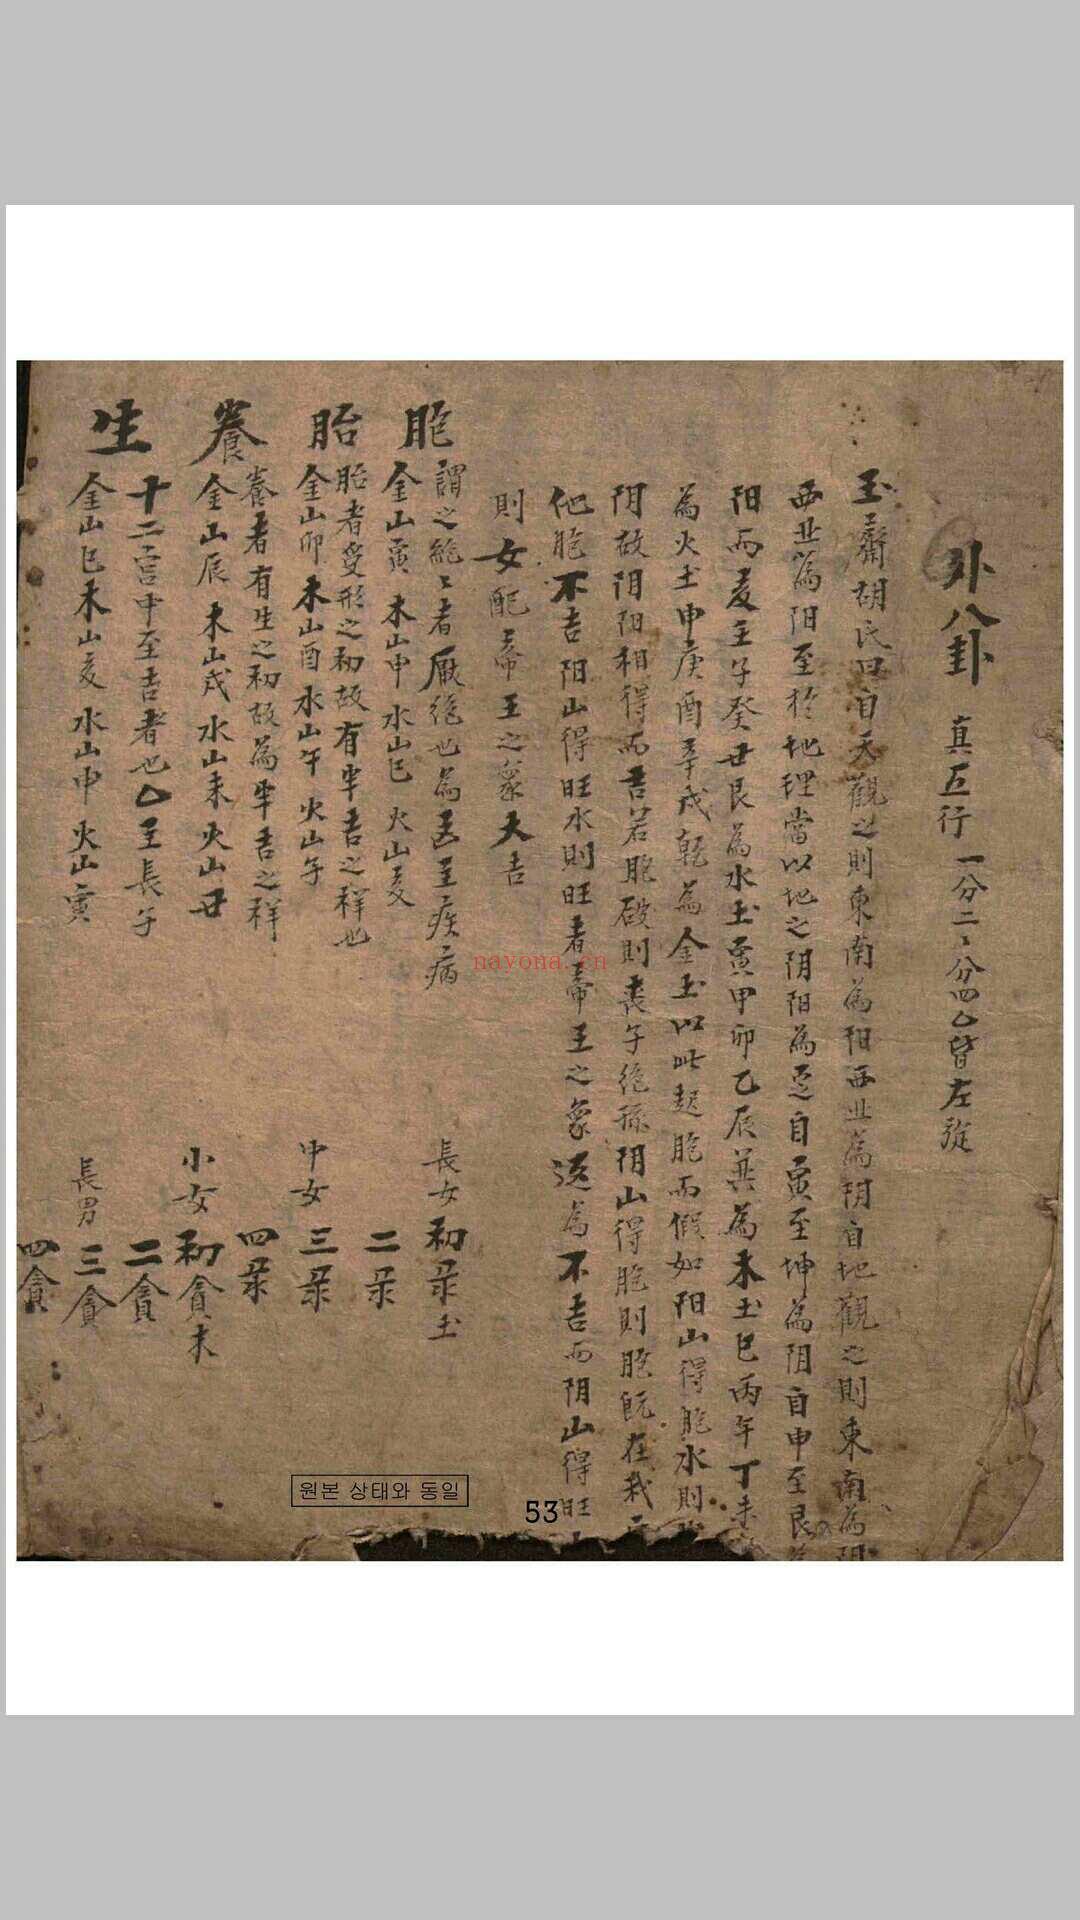 外八卦 真五行 一分二〻分四乙皆左旋
玉齋胡氏曰自天觀之則東南為阳西北為阴自地觀之則東南為阴
西北為阳至於地理當以地之阴阳為正自寅至坤為阴自申至艮為
阳而亥壬子癸丑艮為水土寅甲卯乙辰巽為木土巳丙午丁未
為火土申庚酉辛戌乾為金土以此起胞而假如阳山得胞水則
阴故阴阳相得而吉若胞破則喪子絶孫阴山得胞則胞旣在我
他胞不吉阳山得旺水則旺者帝王之象返為不吉而阴山得旺
則女配帝王之象大吉
胞 謂之絶〻者厭絶也為凶主疾病
金山寅 木山申 水山巳 火山亥
胎 胎者受形之初故有半吉之祥也
金山卯 木山酉 水山午 火山子
養 養者有生之初故為半吉之祥
金山辰 木山戌 水山未 火山丑
生 十二宮中至吉者也乙主長子
金山巳 木山亥 水山申 火山寅
長女 初彔土
二彔
中女 三彔
四彔
小女 初貪木
二貪
長男 三貪
四貪
nayona.cn
원본 상태와 동일
53